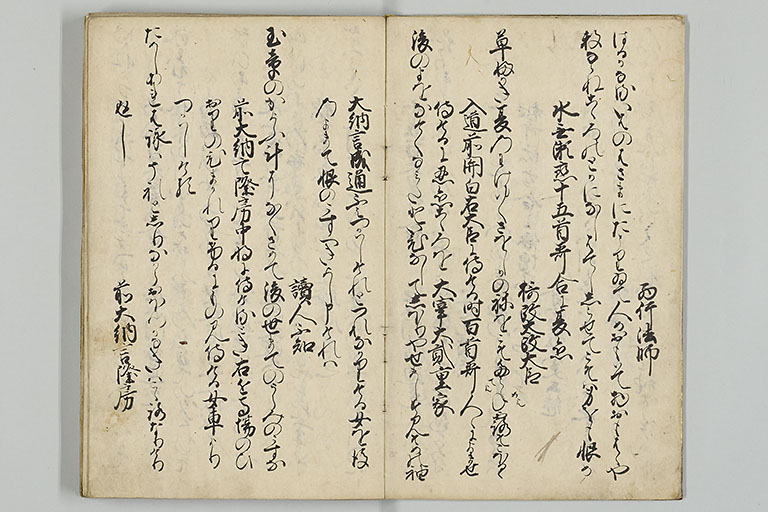 西行法師
はるかなるいはのはさまにひとりゐて人めおもはて物おもはゝや
数ならぬこゝろのとかになしはてししらせてこそは身をも恨め
水無瀬恋十五首哥合に夏恋を
摂政太政大臣
草ふかき夏野わけゆくさをしかの祢をこそたてね露そこほるゝ
入道前関白右大臣に侍ける時百首哥人々によませ
侍けるに忍恋のこゝろを　大宰大貳重家
後のよをなけくなみたといひなしてしほりやせまし墨そめの袖
大納言成通ふみつかはしけれとつれなかりける女を後
のよまて恨のこるへきよし申けれは
讀人不知
玉章のかよふ計になくさめて後の世まてのうらみのこすな
前大納言隆房中将に侍ける時右近馬場のひ
おりの日まかれりけるにもの見侍ける女車より
つかはしける
ためしあれはなかめはそれとしりなからおほつかなきは心なりけり
返し　前大納言隆房